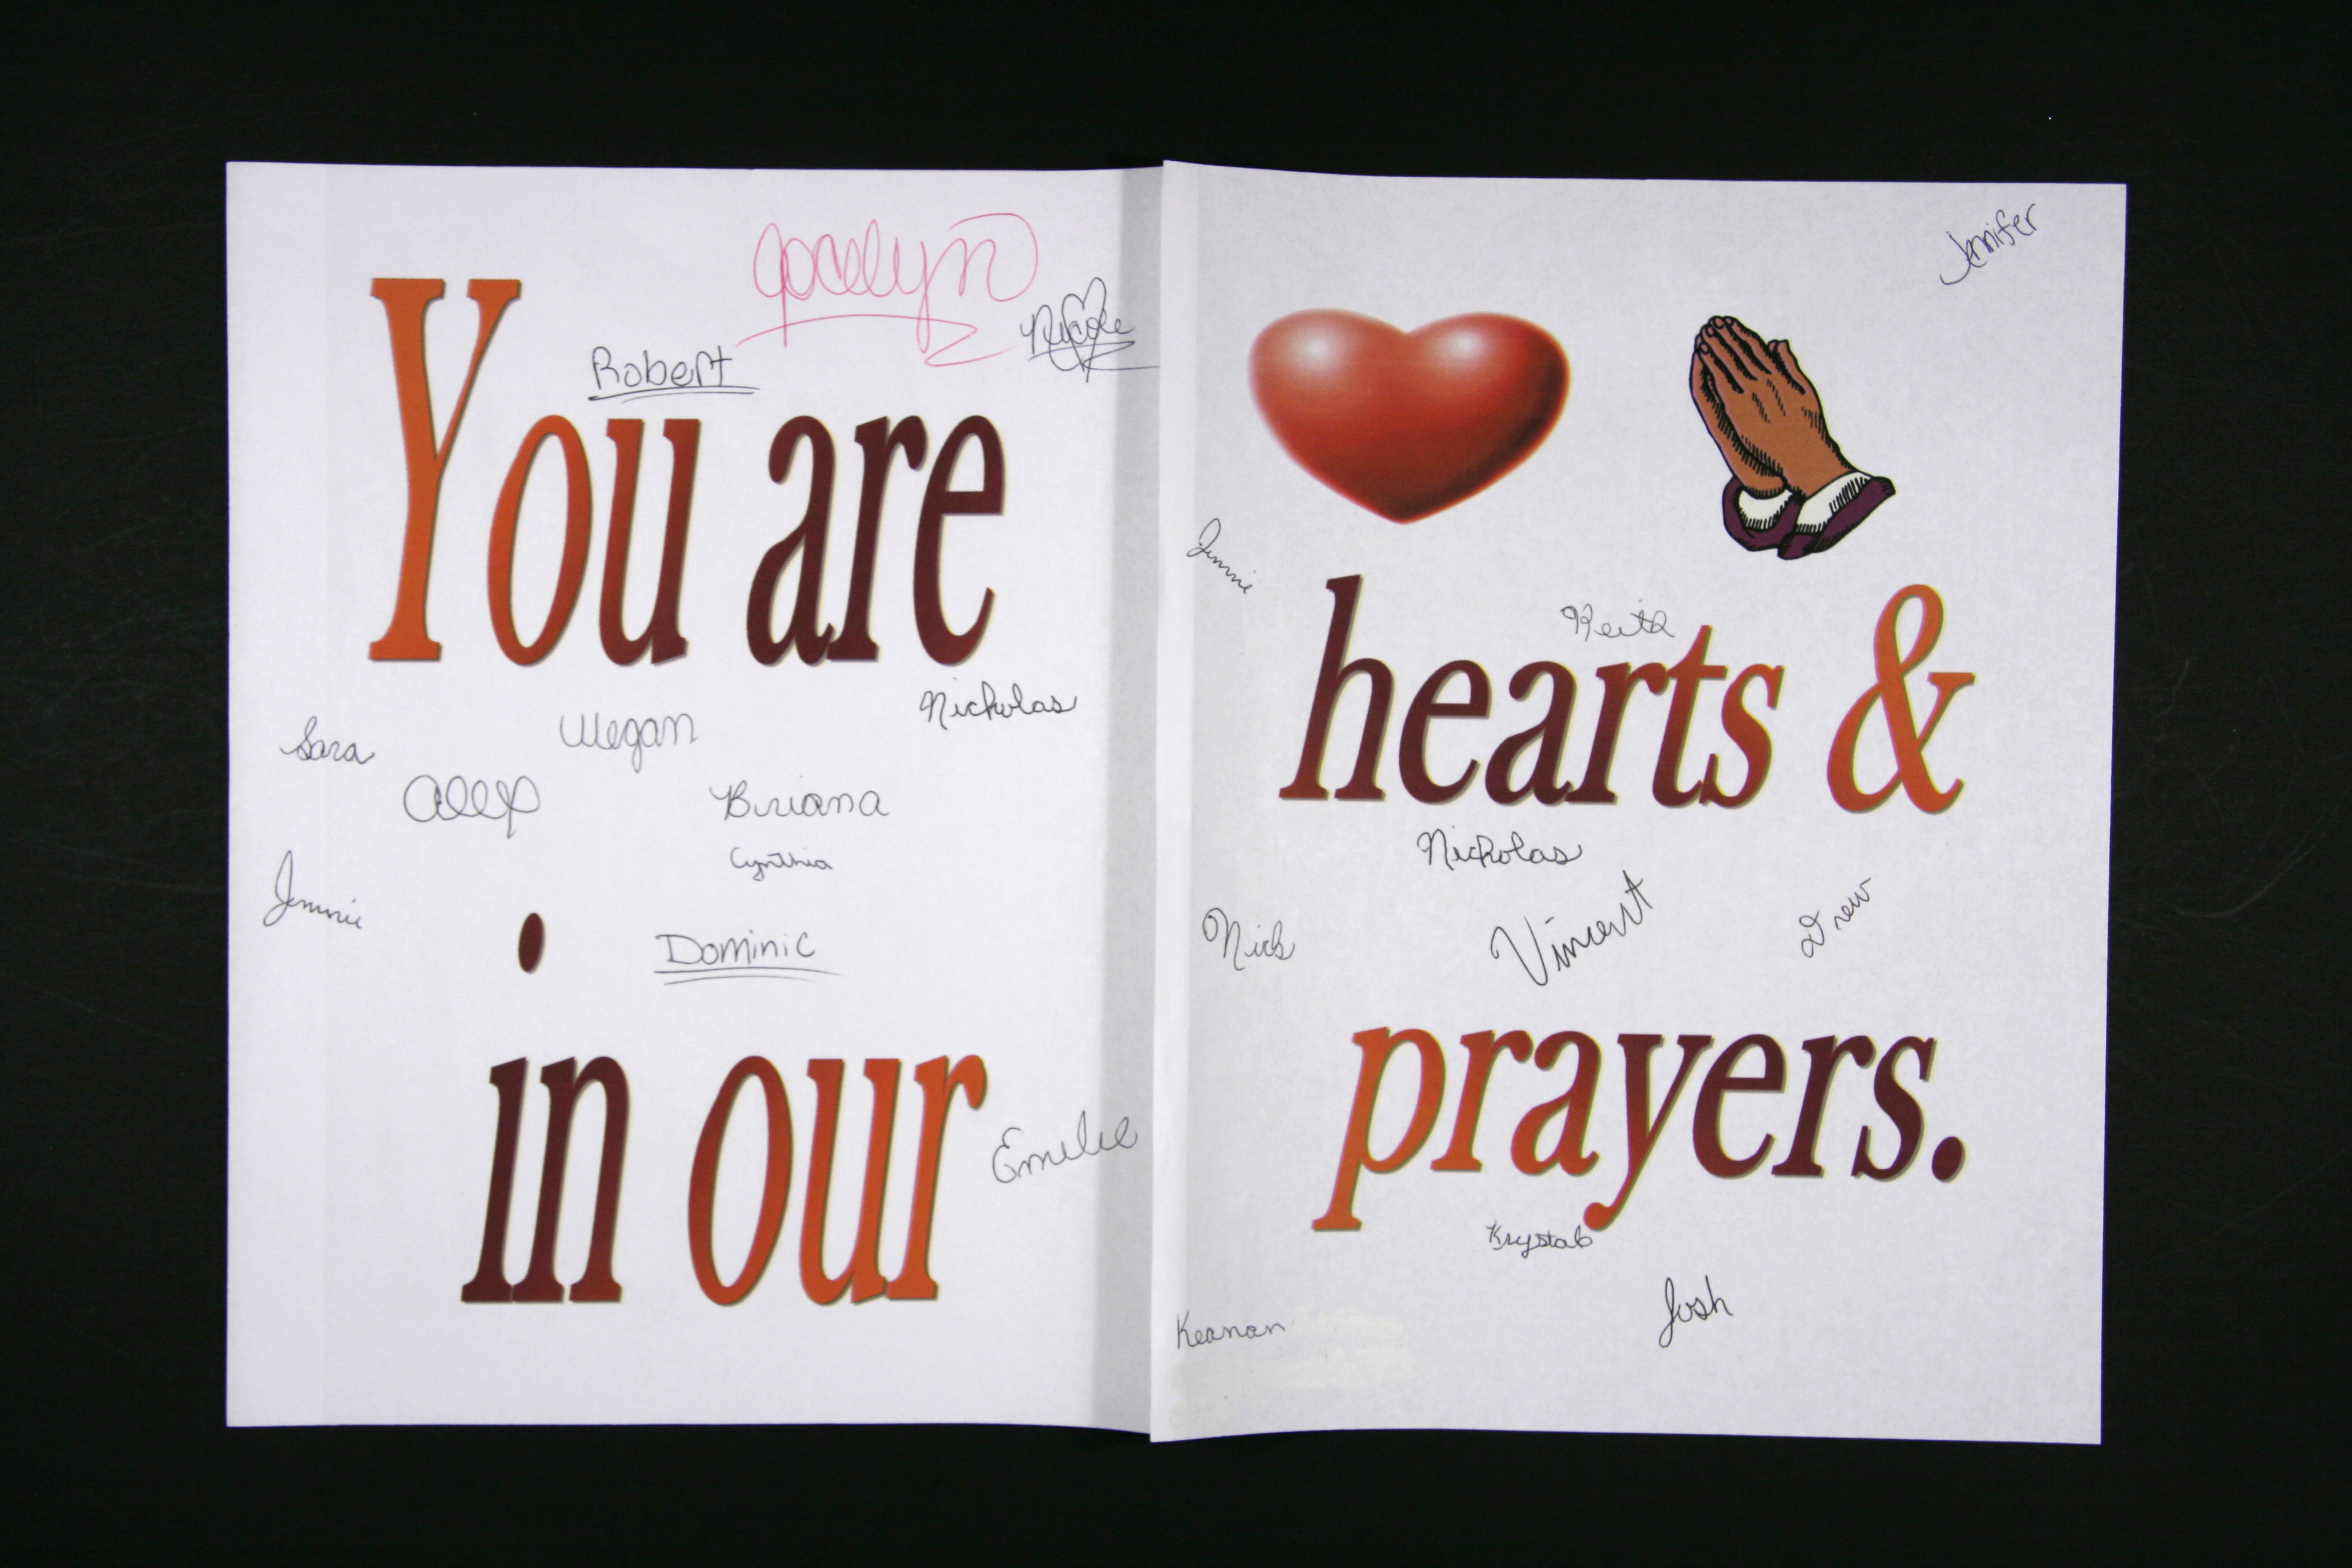 Jocelyn
Nicole
Robert
You are
Nicholas
Megan
Sara
Alex
Briana
Cynthia
Jimmie
Dominic
in our
Emelie
Jennifer
Jimmie
Keith
hearts &
Nicholas
Nick
Vincent
Drew
prayers.
Krystal
Josh
Keanan